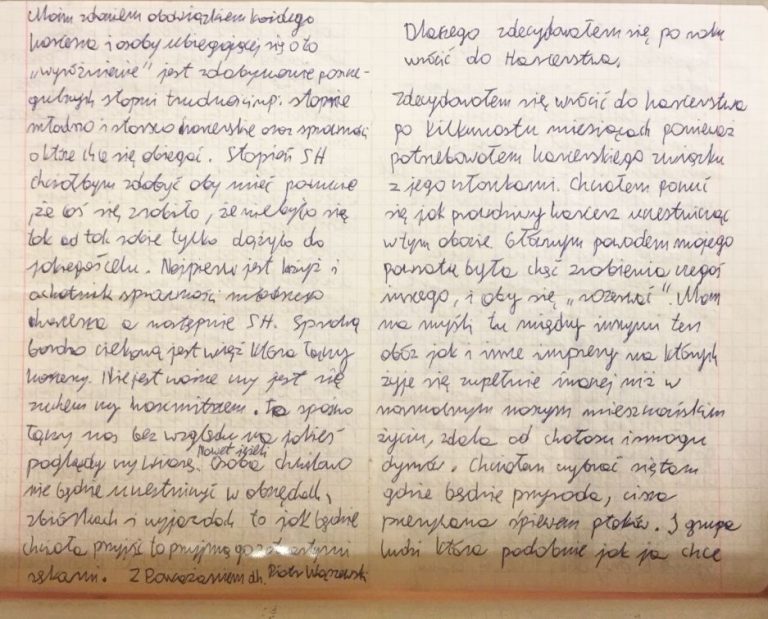 Moim zdaniem obowiązkiem każdego
harcerza i osoby ubiegającej się o to
„wyróżnienie" jest zdobywanie poszcze-
gulnych stopni trudności np. stopnie
młodzo i starszo harcerskie oraz sprawności
o które chce się obiegać. Stopień SH
chciałbym zdobyć aby mieć poczucie
, że coś się zrobiło, że nie było się
tak od tak sobie tylko dążyło do
jakiegoś celu. Najpierw jest krzyż i
ochotnik sprawności młodszego
harcerza a następnie SH. Sprawą
bardzo ciekawą jest więź która łączy
harcerzy. Nie jest ważne czy jest się
zuchem czy harcmistrzem. Ta spójno
łączy nas bez względu na jakieś
poglądy czy wiarę. Nawet jeżeli Osoba chwilowo
nie będzie uczestniczyć w obrzędach,
zbiórkach i wyjazdach to jak będzie
chciała przyjść to przyjmą go z otwartymi
rękami. Z Poważaniem dh. Piotr Wąszewski
Dlaczego zdecydowałem się po roku
wrócić do Harcerstwa.
Zdecydowałem się wrócić do harcerstwa
po kilkunastu miesiącach ponieważ
potrzebowałem harcerskiego związku
z jego członkami. Chciałem poczuć
się jak prawdziwy harcerz uczestnicząc
w tym obozie. Głównym powodem mojego
powrotu była chęć zrobienia czegoś
innego, i aby się „rozerwać". Mam
na myśli tu między innymi ten
obóz jak i inne imprezy na których
żyje się zupełnie inaczej niż w
normalnym naszym mieszczańskim
życiu, zdala od chałasu i smogu
dymów. Chciałem wybrać się tam
gdzie będzie przyroda, cisza
przerywana śpiewem ptaków. I grupa
ludzi która podobnie jak ja chce